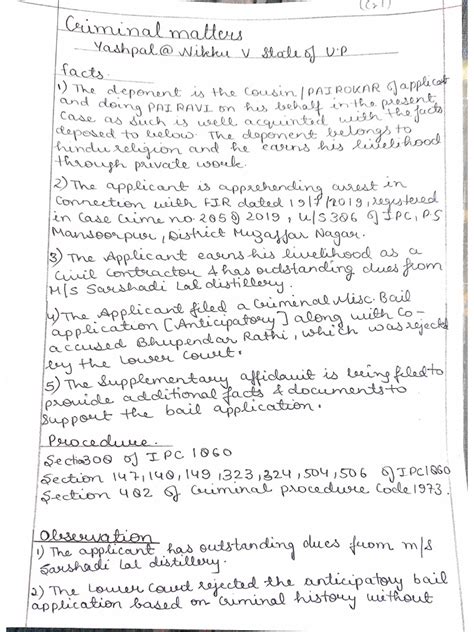 Criminal matters
Yashpal @ Nikku V State of U.P
facts.
1) The deponent is the cousin/PAIROKAR of applicant
and doing PAIRAVI on his behalf in the present
case as such is well acquinted with the facts
deposed to below. The deponent belongs to
hindu religion and he earns his livelihood
through private work.
2) The applicant is apprehending arrest in
connection with FIR dated 19/7/2019, registered
in Case Crime no. of 2019, u/s 306 of IPC, P.S
Mansoorpur, District Muzaffar Nagar.
3) The Applicant earns his livelihood as a
Civil Contractor & has outstanding dues from
M/S Sarshadi Lal distillery.
4) The Applicant filed a Criminal Misc. Bail
application [Anticipatory] along with Co-
accused Bhupendar Rathi, which was rejected
by the Lower Court.
5) The Supplementary affidavit is being filed to
provide additional facts & documents to
support the bail application.
Procedure.
Section 306 of IPC 1860
Section 147, 148, 149, 323, 324, 504, 506 of IPC 1860
Section 482 of Criminal procedure Code 1973.
Observation
1) The applicant has outstanding dues from m/s
Sarshadi Lal distillery.
2) The Lower Court rejected the anticipatory bail
application based on Criminal history without